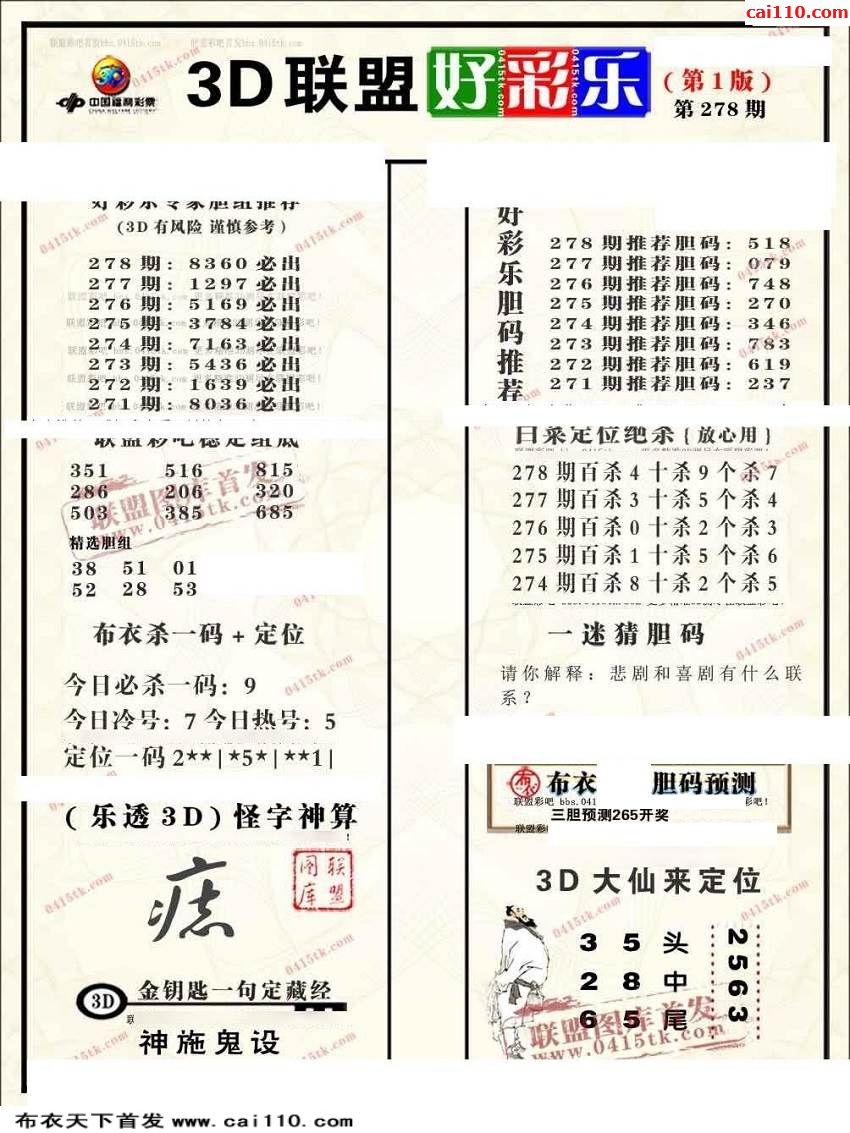 cai110.com
联盟彩吧首发bbs.0415tk.com
吧首发bbs.0415tk.com
0415tk.com
中国福利彩票
CHINA WELFARE LOTTERY
3D联盟好彩乐
0415tk.com
0415tk.com
0415tk.com
(第1版)
第278期
好彩乐专家胆组推荐
(3D有风险 谨慎参考)
278期: 8360必出
277期: 1297必出
276期: 5169必出
275期: 3784必出
274期: 7163必出
273期: 5436必出
272期: 1639必出
271期: 8036必出
联盟彩吧稳定组底
351 516 815
286 206 320
503 385 685
联盟图库首发
www.0415tk.com
精选胆组
38 51 01
52 28 53
布衣杀一码+定位
今日必杀一码: 9
今日冷号: 7 今日热号: 5
定位一码 2**|*5*|**1|
(乐透3D)怪字神算
痣
联盟图库
3D
金钥匙一句定藏经
联
神施鬼设
好彩乐胆码推荐
278期推荐胆码: 518
277期推荐胆码: 079
276期推荐胆码: 748
275期推荐胆码: 270
274期推荐胆码: 346
273期推荐胆码: 783
272期推荐胆码: 619
271期推荐胆码: 237
白菜定位绝杀{放心用}
278期百杀4十杀9个杀7
277期百杀3十杀5个杀4
276期百杀0十杀2个杀3
275期百杀1十杀5个杀6
274期百杀8十杀2个杀5
一迷猜胆码
请你解释: 悲剧和喜剧有什么联
系?
布衣
布衣 胆码预测
联盟彩吧 bbs.041 彩吧!
三胆预测265开奖
联盟彩
3D大仙来定位
3 5 头
2 8 中
6 5 尾
2563
联盟图库首发
www.0415tk.com
布衣天下首发 www.cai110.com